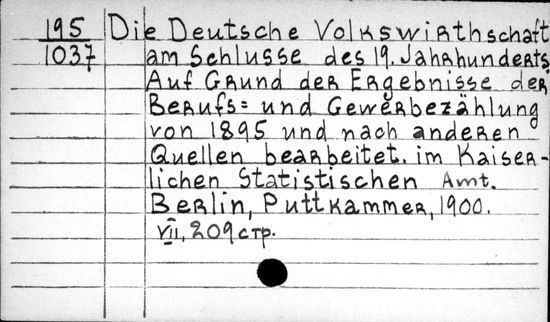 195 Die Deutsche Volkswirthschaft
1037 am Schlusse des 19. Jahrhunderts
Auf Grund der Ergebnisse der
Berufs= und Gewerbezählung
von 1895 und nach anderen
Quellen bearbeitet. im Kaiser-
lichen Statistischen Amt.
Berlin, Puttkammer, 1900.
VII, 209 стр.